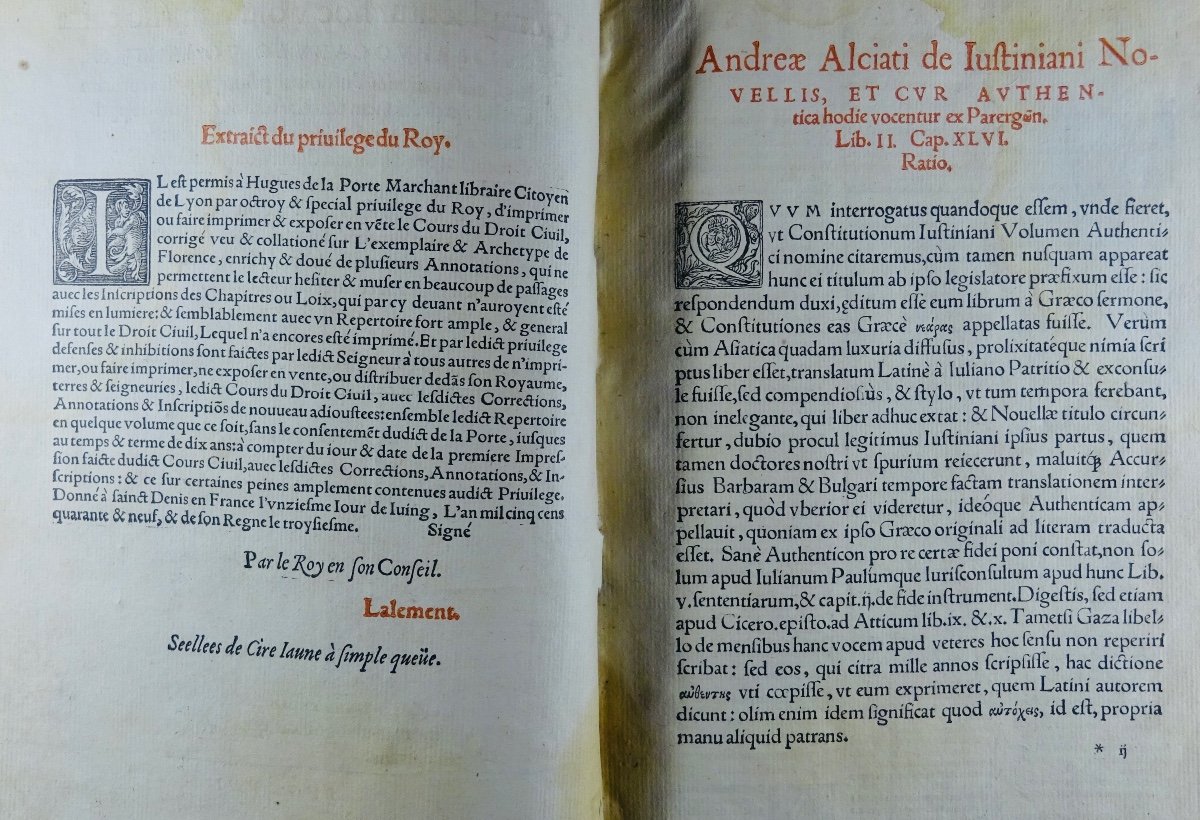 Extraict du priuilege du Roy.
IL est permis à Hugues de la Porte Marchant libraire Citoyen
de Lyon par octroy & special priuilege du Roy, d'imprimer
ou faire imprimer & exposer en vẽte le Cours du Droit Ciuil,
corrigé veu & collationé sur L'exemplaire & Archetype de
Florence, enrichy & doué de plusieurs Annotations, qui ne
permettent le lecteur hesiter & muser en beaucoup de passages
auec les Inscriptions des Chapitres ou Loix, qui par cy deuant n'auroyent esté
mises en lumiere: & semblablement auec vn Repertoire fort ample, & general
sur tout le Droit Ciuil, Lequel n'a encores esté imprimé. Et par ledict priuilege
defenses & inhibitions sont faictes par ledict Seigneur à tous autres de n'impri-
mer, ou faire imprimer, ne exposer en vente, ou distribuer dedãs son Royaume,
terres & seigneuries, ledict Cours du Droit Ciuil, auec lesdictes Corrections,
Annotations & Inscriptiõs de nouueau adioustees: ensemble ledict Repertoire
en quelque volume que ce soit, sans le consentemẽt dudict de la Porte, iusques
au temps & terme de dix ans: à compter du iour & date de la premiere Impres-
sion faicte dudict Cours Ciuil, auec lesdictes Corrections, Annotations, & In-
scriptions: & ce sur certaines peines amplement contenues audict Priuilege.
Donné à sainct Denis en France l'vnziesme Iour de Iuing, L'an mil cinq cens
quarante & neuf, & de son Regne le troysiesme. Signé
Par le Roy en son Conseil.
Lalement.
Seellees de Cire Iaune à simple queüe.
Andreæ Alciati de Iustiniani No-
VELLIS, ET CVR AVTHEN-
tica hodie vocentur ex Parergõn.
Lib. II. Cap. XLVI.
Ratio.
QVVM interrogatus quandoque essem, vnde fieret,
vt Constitutionum Iustiniani Volumen Authenti-
ci nomine citaremus, cùm tamen nusquam appareat
hunc ei titulum ab ipso legislatore præfixum esse: sic
respondendum duxi, ęditum esse eum librum à Græco sermone,
& Constitutiones eas Græcè νεάρας appellatas fuisse. Verùm
cùm Asiatica quadam luxuria diffusus, prolixitatéque nimia scri
ptus liber esset, translatum Latinè à Iuliano Patritio & exconsu-
le fuisse, sed compendiosiùs, & stylo, vt tum tempora ferebant,
non inelegante, qui liber adhuc extat: & Nouellæ titulo circun-
fertur, dubio procul legitimus Iustiniani ipsius partus, quem
tamen doctores nostri vt spurium reiecerunt, maluitq́ꝫ Accur-
sius Barbaram & Bulgari tempore factam translationem inter-
pretari, quòd vberior ei videretur, ideóque Authenticam ap-
pellauit, quoniam ex ipso Græco originali ad literam traducta
esset. Sanè Authenticon pro re certæ fidei poni constat, non so-
lum apud Iulianum Paulúmque Iurisconsultum apud hunc Lib.
v. sententiarum, & capit. ij. de fide instrument. Digestis, sed etiam
apud Cicero. episto. ad Atticum lib. ix. &. x. Tametsi Gaza libel-
lo de mensibus hanc vocem apud veteres hoc sensu non reperiri
scribat: sed eos, qui citra mille annos scripsisse, hac dictione
αὐθεντης vti cœpisse, vt eum exprimeret, quem Latini autorem
dicunt: olim enim idem significat quod αὐτόχεις, id est, propria
manu aliquid patrans.
* ij